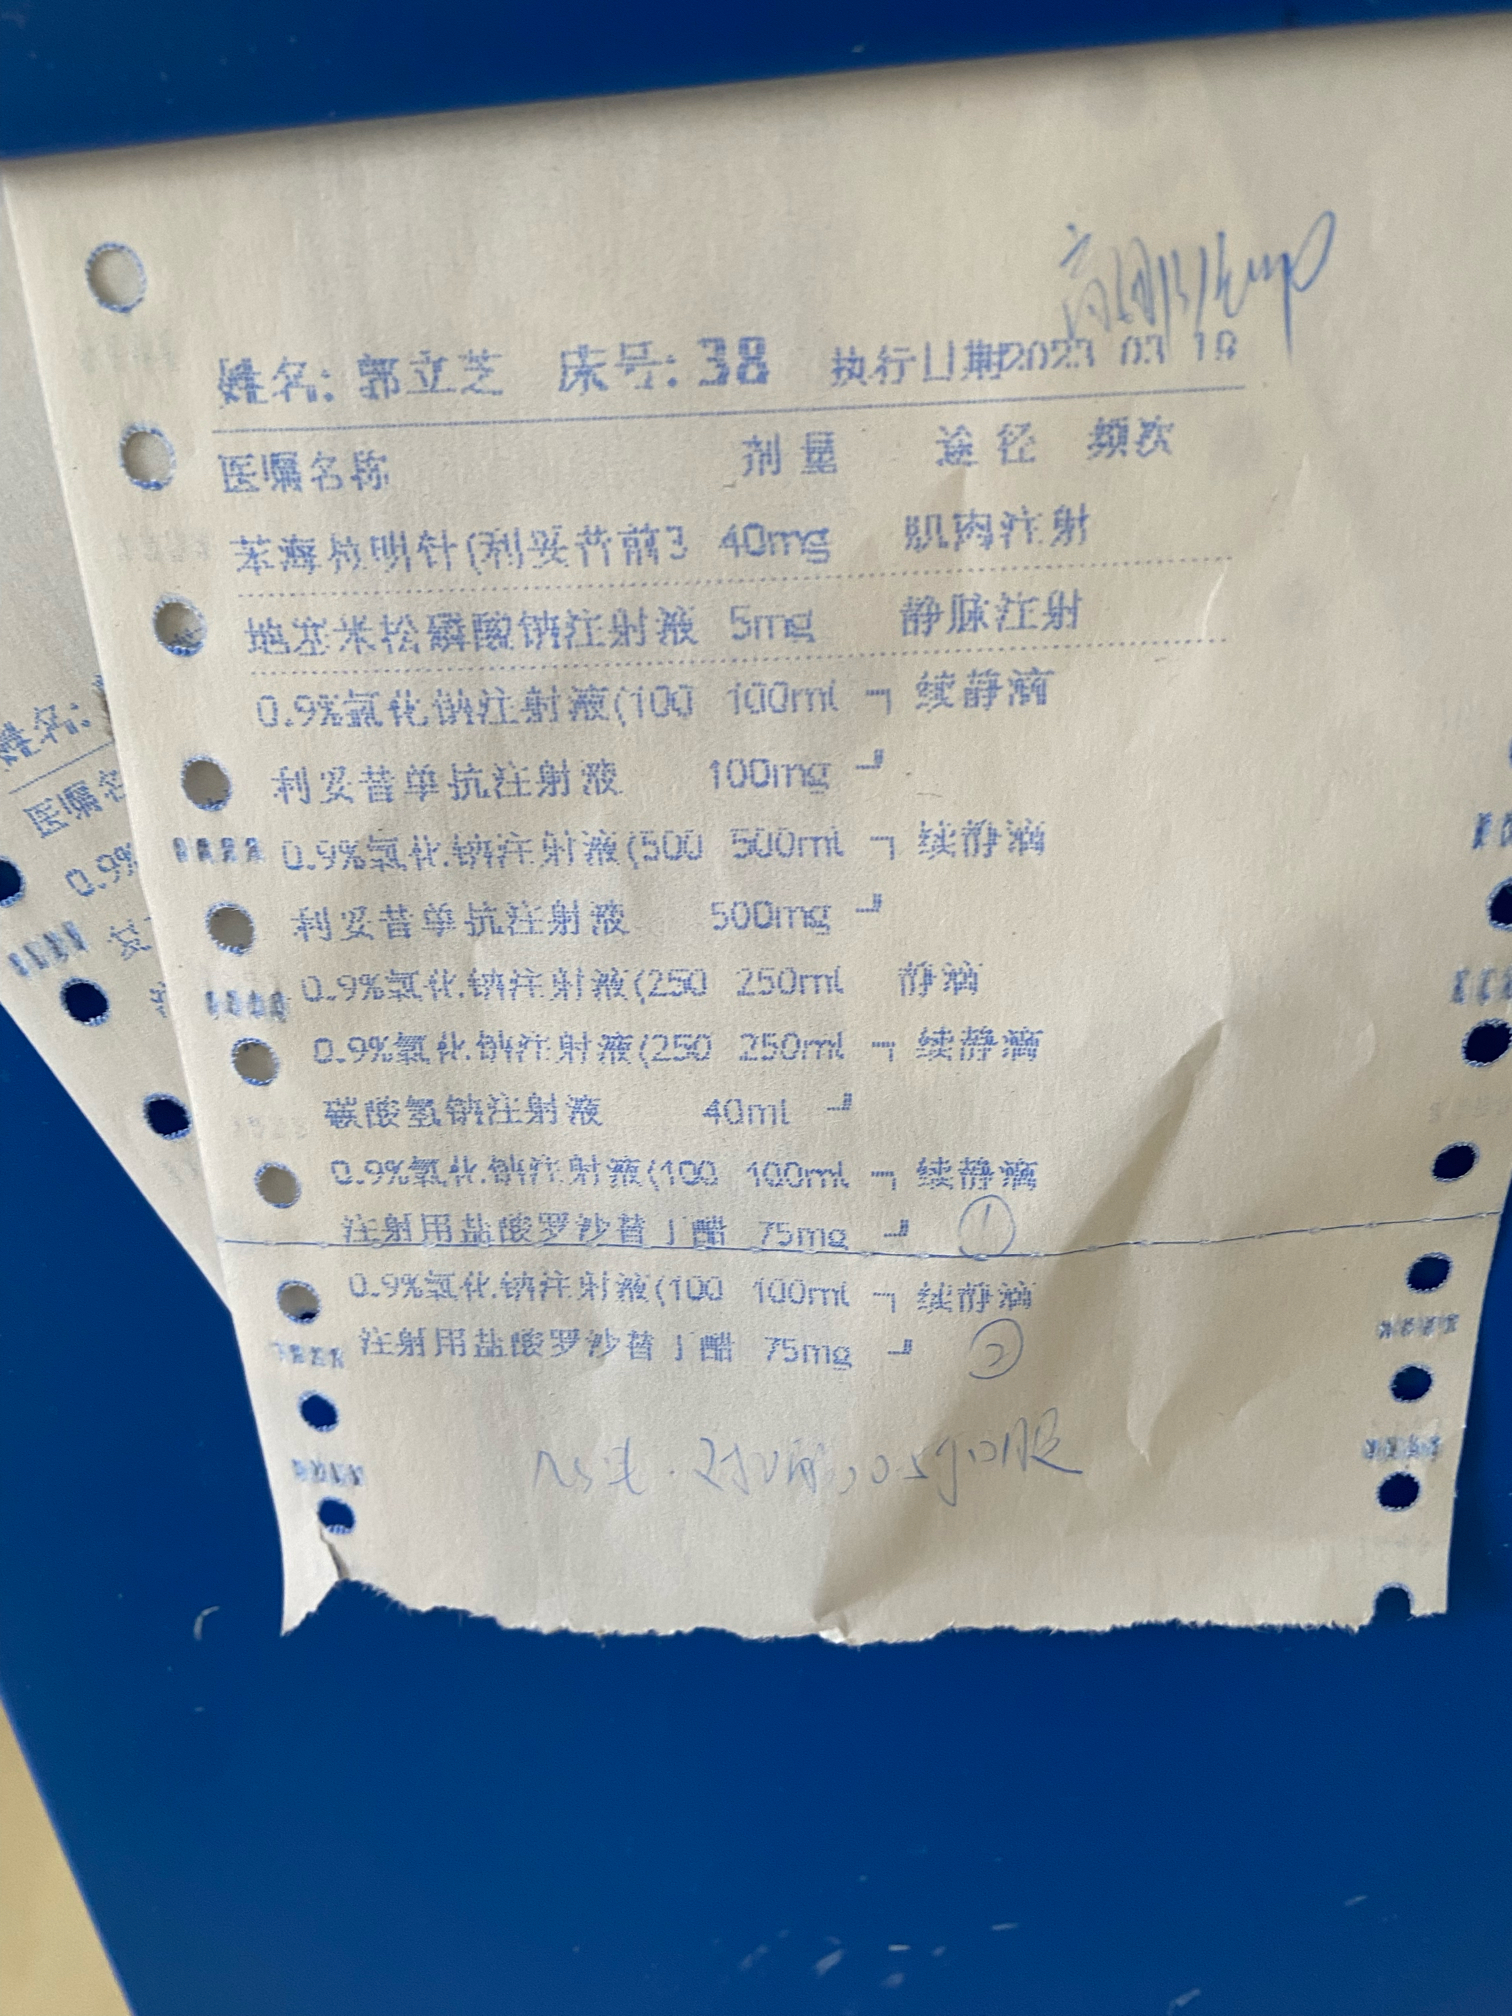 姓名: 郭立芝 床号: 38 执行日期2023 03 18
医嘱名称 剂量 途径 频次
苯海拉明针(利妥昔前3 40mg 肌肉注射
地塞米松磷酸钠注射液 5mg 静脉注射
0.9%氯化钠注射液(100 100ml ┐ 续静滴
利妥昔单抗注射液 100mg ┘
0.9%氯化钠注射液(500 500ml ┐ 续静滴
利妥昔单抗注射液 500mg ┘
0.9%氯化钠注射液(250 250ml 静滴
0.9%氯化钠注射液(250 250ml ┐ 续静滴
碳酸氢钠注射液 40ml ┘
0.9%氯化钠注射液(100 100ml ┐ 续静滴
注射用盐酸罗沙替丁醋 75mg ┘ ①
0.9%氯化钠注射液(100 100ml ┐ 续静滴
注射用盐酸罗沙替丁醋 75mg ┘ ②
口服
姓名:
医嘱名
0.9%